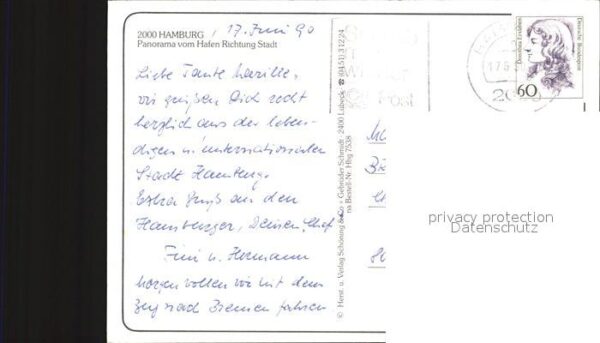 2000 HAMBURG , 17. Juni 90
Panorama vom Hafen Richtung Stadt
Liebe Tante
wir grüßen Dich recht
herzlich aus der leben-
digen u. internationalen
Stadt Hamburg.
Extra Gruß an den
Hamburger, Deinen Chef
Fini u. Hermann
morgen wollen wir mit dem
Zug nach Bremen fahren
© Herst. u. Verlag Schöning & Co + Gebrüder Schmidt · 2400 Lübeck · ☎ (0451) 31224
na Bestell-Nr. Hbg 7538
Post
17.6
20
Dorothea Erxleben
Deutsche Bundespost
60
privacy protection
Datenschutz